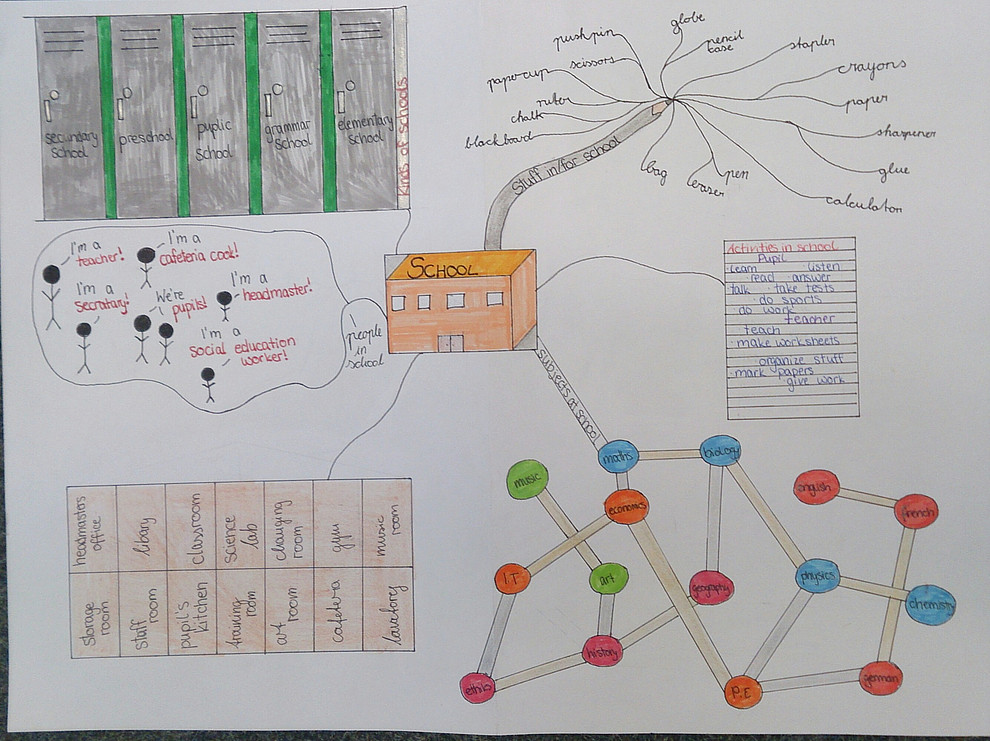 secundary
school
preschool
puplic
school
grammar
school
elementary
school
kinds of schools
globe
pushpin
pencil
case
stapler
scissors
crayons
papercup
paper
ruler
chalk
sharpener
blackboard
glue
bag
eraser
pen
calculator
Stuff in/for school
I'm a
teacher!
I'm a
cafeteria cook!
I'm a
secratary!
We're
pupils!
I'm a
headmaster!
I'm a
social education
worker!
people
in
school
SCHOOL
Activities in school
Pupil
·learn ·listen
·read ·answer
·talk ·take tests
·do sports
·do work
teacher
·teach
·make worksheets
·organize stuff
·mark papers
·give work
subjects at school
maths
biology
music
economics
english
french
I.T
art
geography
physics
chemisty
history
ethiks
P.E
german
headmasters
office
libary
classroom
science
lab
changing
room
gym
music
room
storage
room
staff
room
pupil's
kitchen
training
room
art
room
cafetera
lavatory